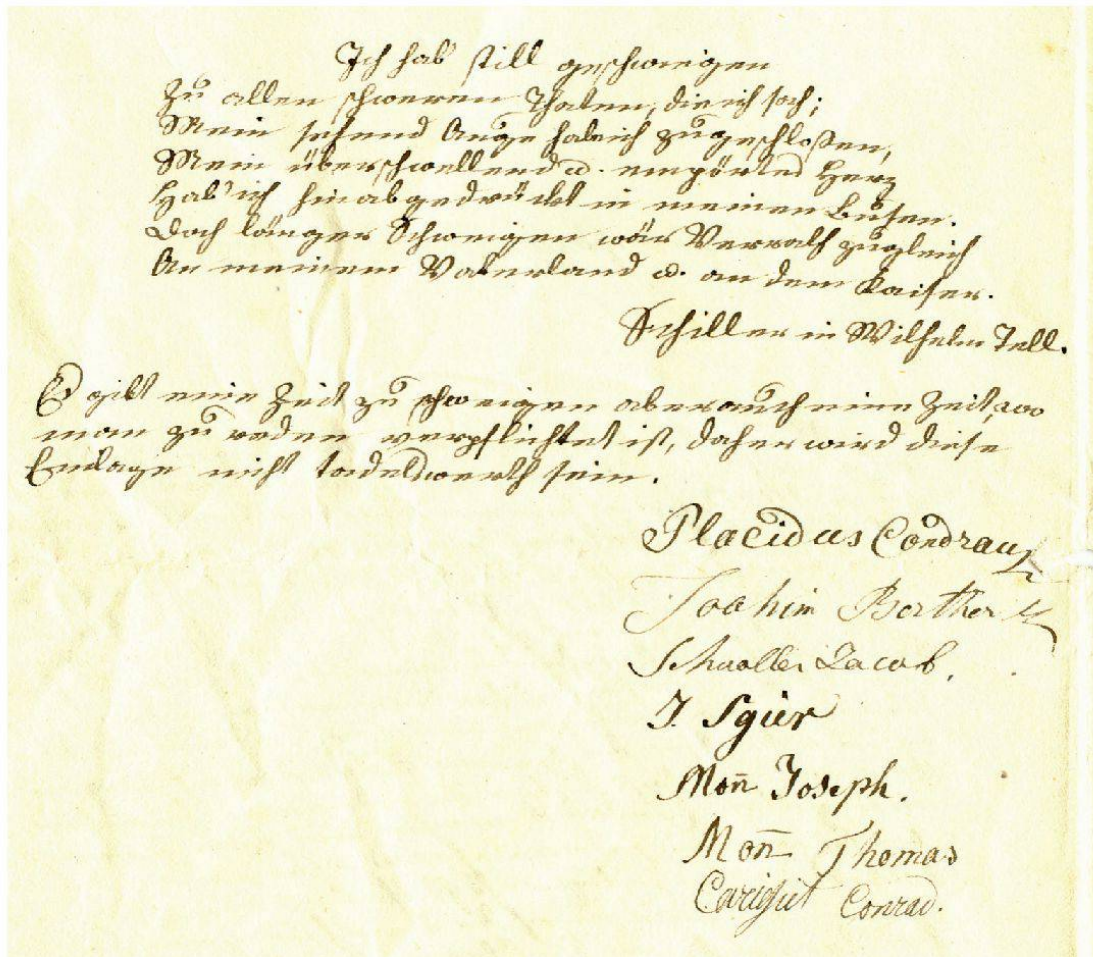 Ich hab still geschwiegen
Zu allen schweren Thaten, die ich sah;
Mein sehend Auge hab ich zugeschloßen,
Mein überschwellend u. empörtes Herz
Hab' ich hinabgedrückt in meinen Busen.
Doch länger Schweigen wär Verrath zugleich
An meinem Vaterland u. an dem Kaiser.
Schiller in Wilhelm Tell.
Es gibt eine Zeit zu schweigen aber auch eine Zeit, wo
man zu reden verpflichtet ist, daher wird diese
Einlage nicht tadelswerth sein.
Placidus Condrau
Joachim Berther
Jacob.
J. Sgier
Mon̄ Joseph.
Mon̄ Thomas
Carigiet Conrad.